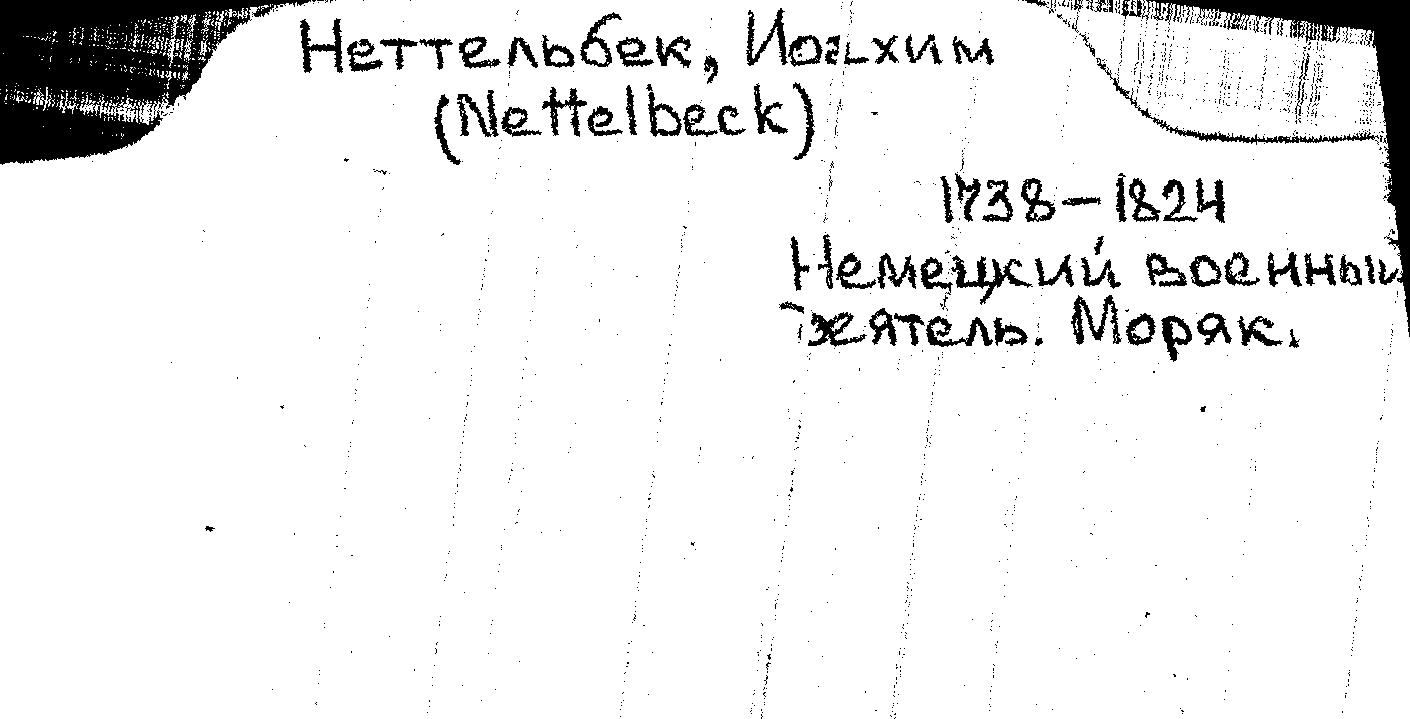 Неттельбек, Иоахим
(Nettelbeck)
1738-1824
Немецкий военный
деятель. Моряк.